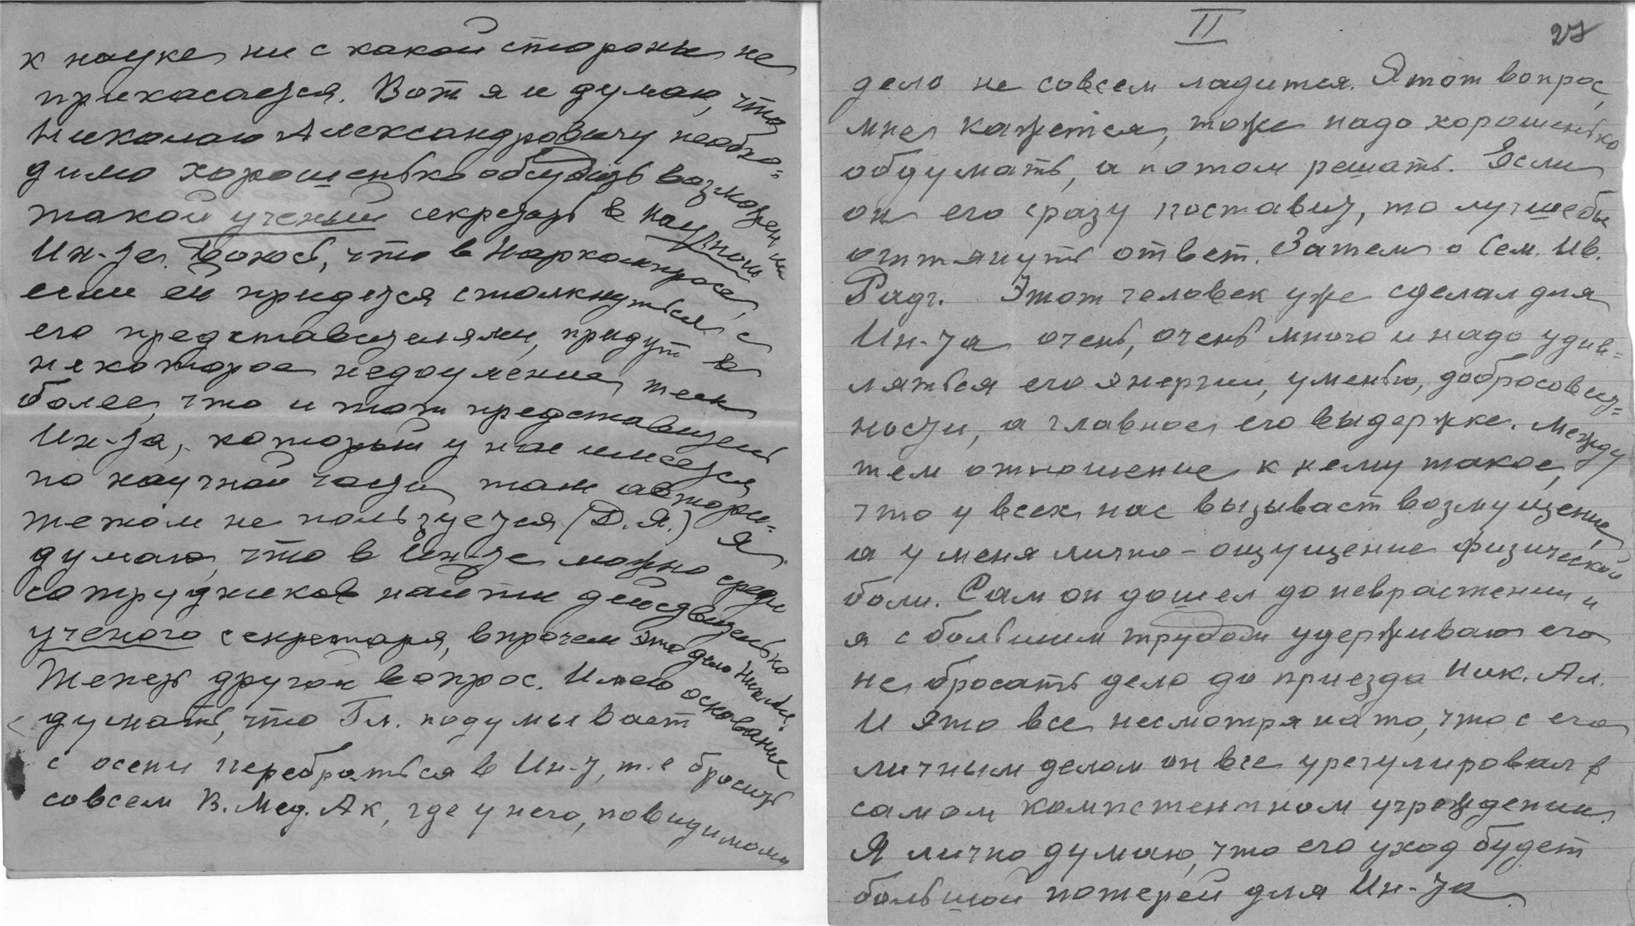 к науке ни с какой стороны не
прикасается. Вот я и думаю, что
Николаю Александровичу необхо=
димо хорошенько обсудить возможен ли
такой ученый секретарь в научном
Ин-те. Боюсь, что в Наркомпросе,
если ей придется столкнуться с
его представителями, придут в
некоторое недоумение, тем
более, что и тот представитель
Ин-та, который у нас имеется
по научной части там автори=
тетом не пользуется (Д.Я.) Я
думаю, что в Ин-те можно среди
сотрудников найти действительно
ученого секретаря, впрочем это дело
Теперь другой вопрос. Имею основание
думать, что Гл. подумывает
с осени перебраться в Ин-т, т.е бросить
совсем В. Мед. Ак, где у него, повидимому
II
27
дело не совсем ладится. Этот вопрос,
мне кажется, тоже надо хорошенько
обдумать, а потом решать. Если
он его сразу поставит, то лучше бы
оттянуть ответ. Затем о Сем. Ив.
Радч. Этот человек уже сделал для
Ин-та очень, очень много и надо удив=
ляться его энергии, уменью, добросовест=
ности, а главное его выдержке. Между
тем отношение к нему такое,
что у всех нас вызывает возмущение,
а у меня лично – ощущение физической
боли. Сам он дошел до неврастении и
я с большим трудом удерживаю его
не бросать дело до приезда Ник. Ал.
И это все несмотря на то, что с его
личным делом он все урегулировал в
самом компетентном учреждении.
Я лично думаю, что его уход будет
большой потерей для Ин-та.